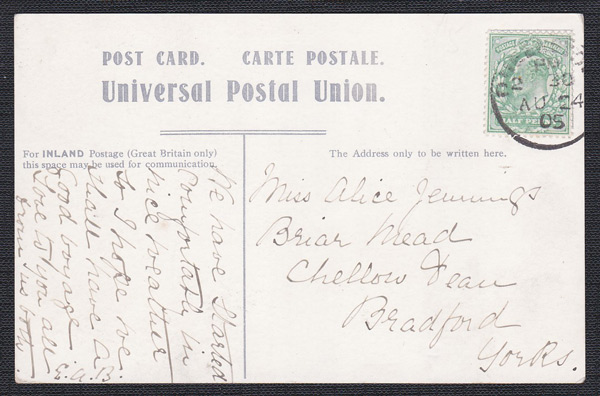 POST CARD. CARTE POSTALE.
Universal Postal Union.
For INLAND Postage (Great Britain only)
this space may be used for communication.
The Address only to be written here.
POSTAGE REVENUE
HALF PENNY
AU 24
05
We have started
Comfortable in
nice weather
So I hope we
shall have a
Good voyage
Love to you all
from us both.
E.A.B.
Miss Alice Jennings
Briar Mead
Chellow Dean
Bradford
Yorks.